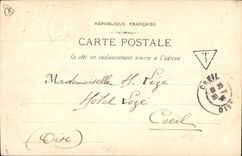 RÉPUBLIQUE FRANÇAISE
CARTE POSTALE
Ce côté est exclusivement réservé à l'adresse
T
CREIL
OISE
Mademoiselle H. Lize
Hotel Lize
Creil
(Oise)